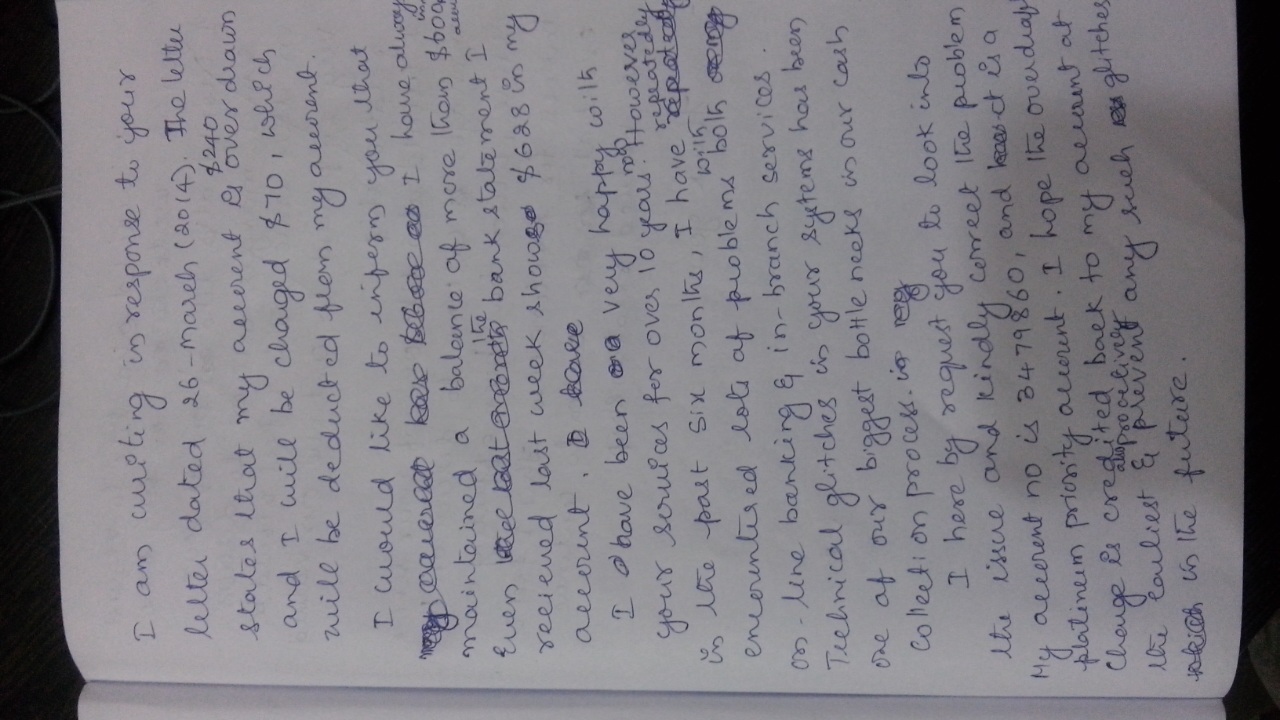 I am writing in response to your
letter dated 26-march (2014). The letter
states that my account is $240 overdrawn
and I will be charged $70, which
will be deducted from my account.
I would like to inform you that
I have alway
maintained a balance of more than $600
Even the bank statement I
received last week show $628 in my
account.
I have been very happy with
your services for over 10 years. However
in the past six months, I have repeatedly
encountered lots of problems with both
on-line banking & in-branch services.
Technical glitches in your systems has been
one of our biggest bottle necks in our cash
collection process.
I here by request you to look into
the issue and kindly correct the problem
My account no is 3479860, and it is a
platinum priority account. I hope the overdraft
charge is credited back to my account at
the earliest & proactively prevent any such glitches
in the future.